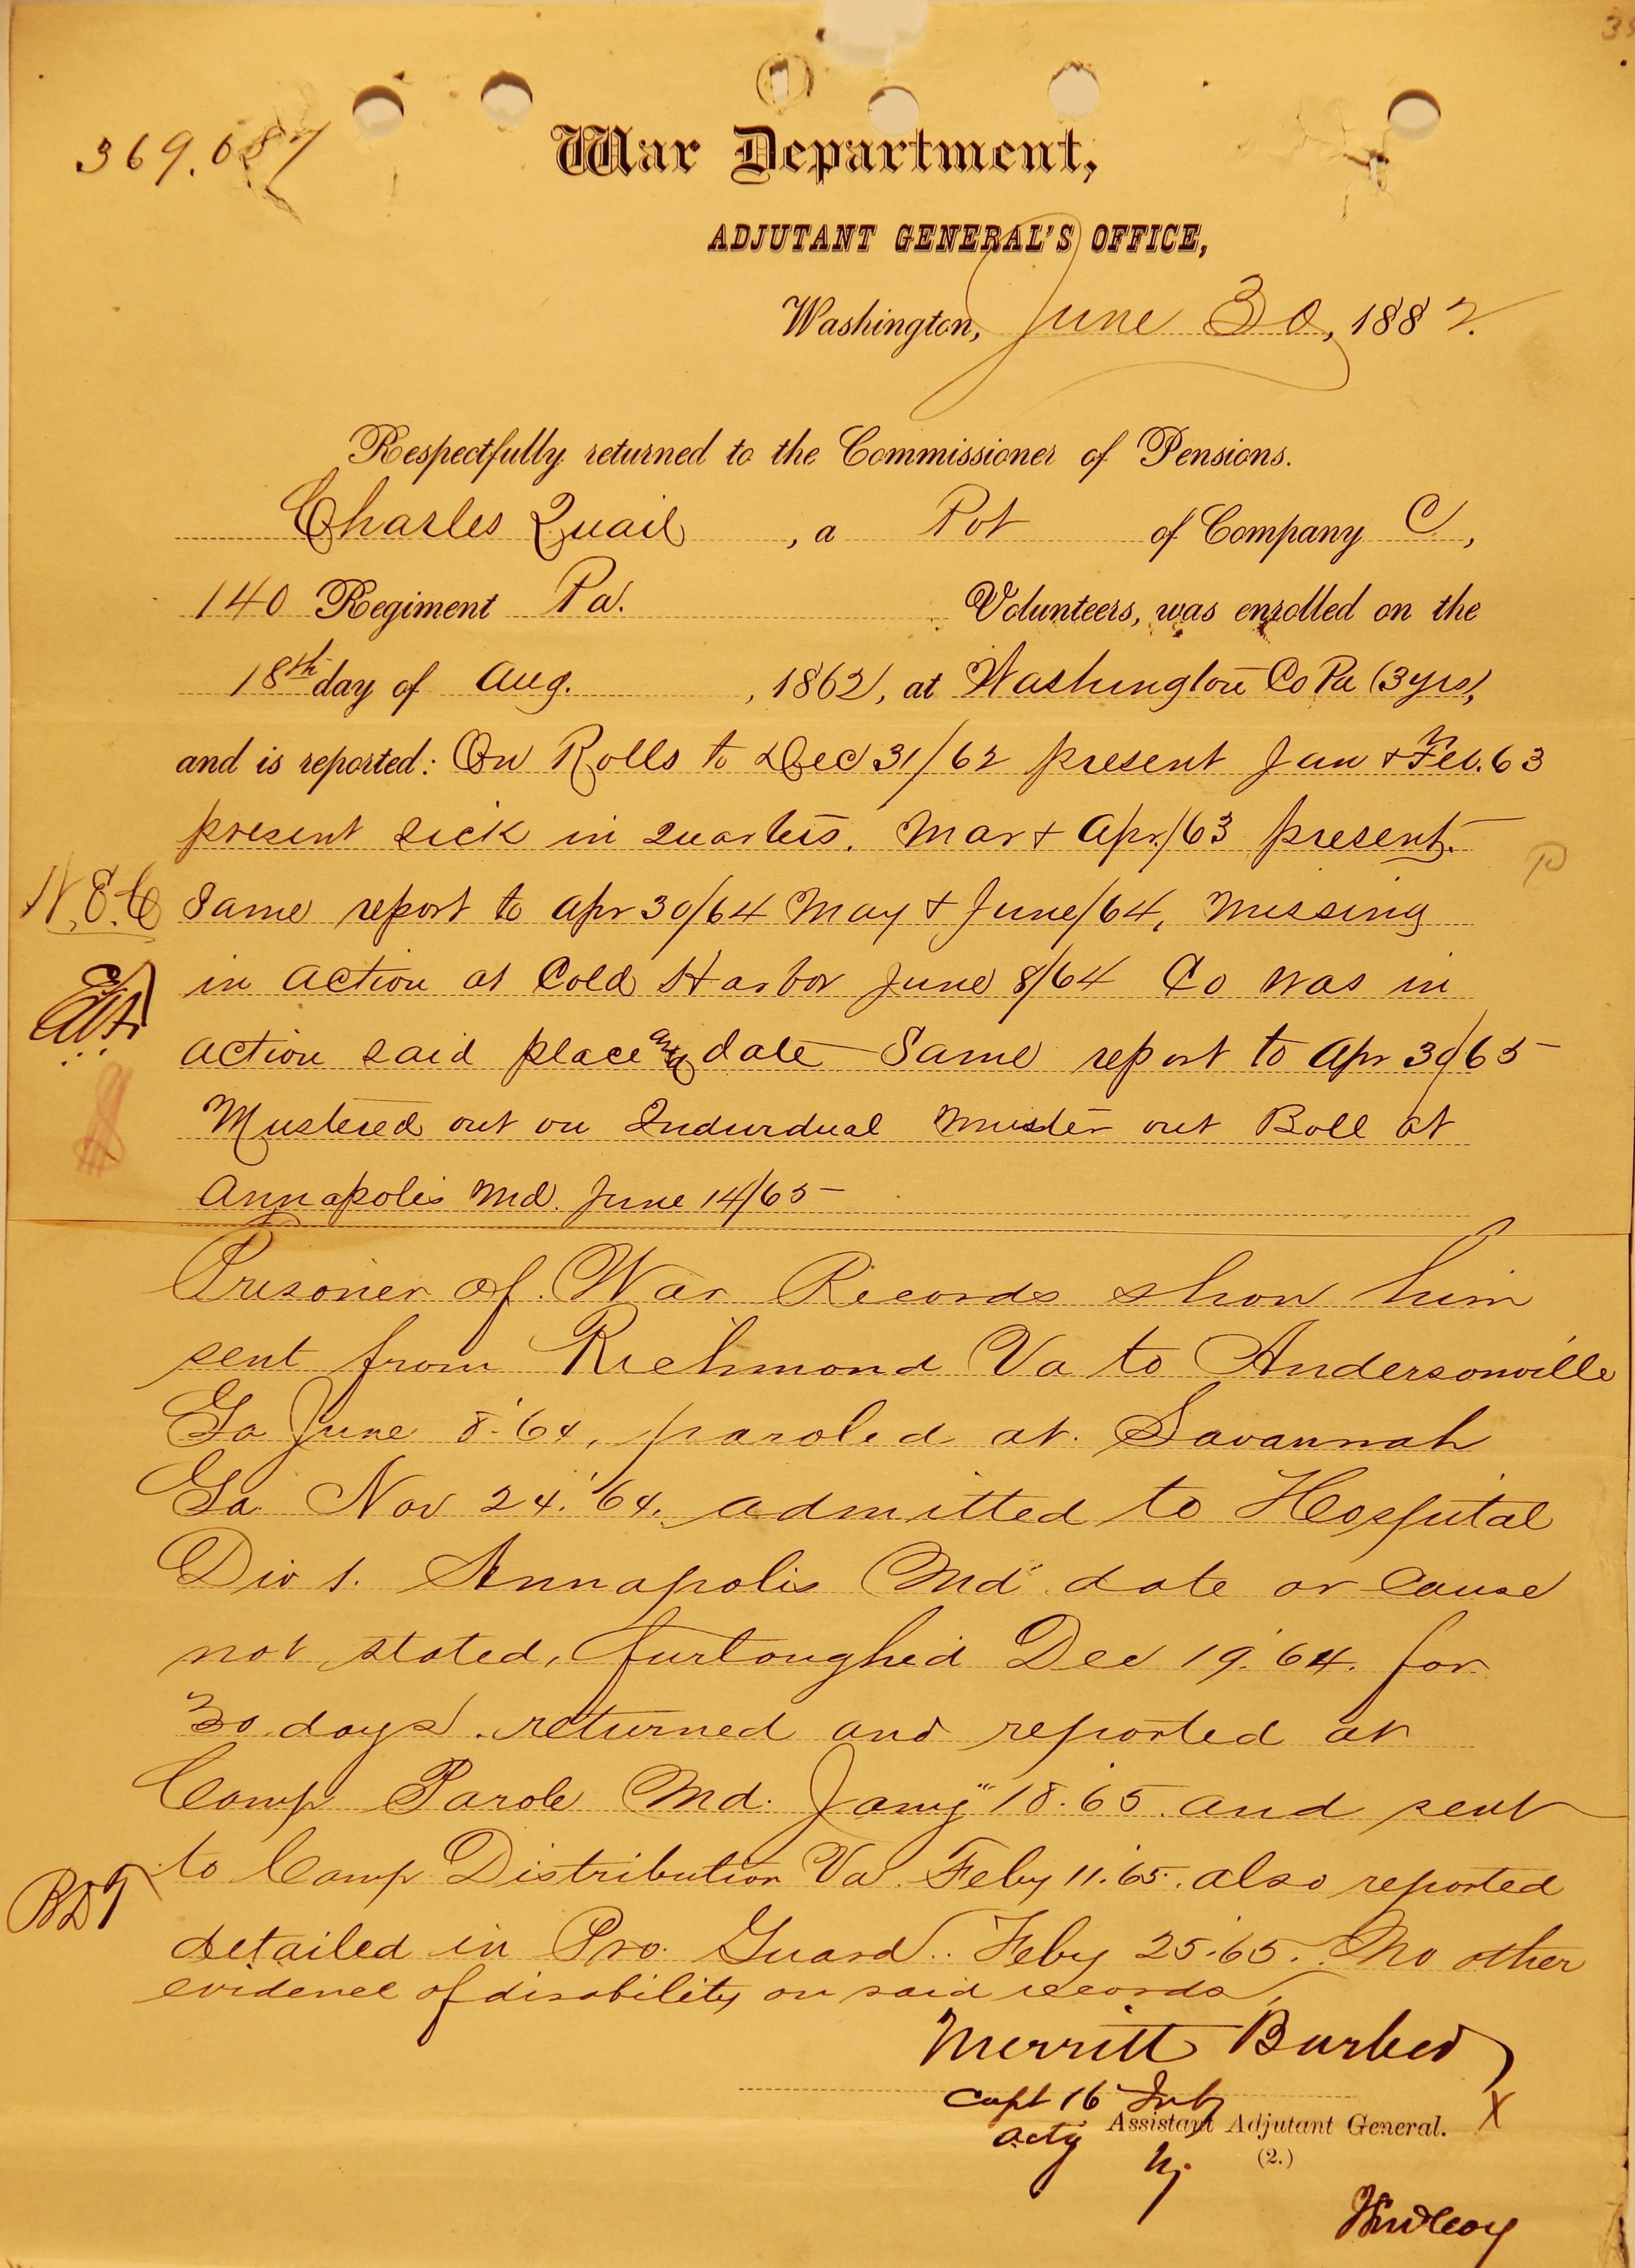 369.087
War Department,
ADJUTANT GENERAL'S OFFICE,
Washington, June 30, 1882.
Respectfully returned to the Commissioner of Pensions.
Charles Quail, a Pvt of Company C,
140 Regiment Pa. Volunteers, was enrolled on the
18th day of Aug., 1862, at Washington Co Pa (3 yrs,
and is reported: On Rolls to Dec 31/62 present Jan + Feb. 63
present sick in quarters. Mar + Apr./63 present.
N.E.C. Same report to Apr 30/64 May + June/64, Missing
in action at Cold Harbor June 8/64 Co was in
action said place and date Same report to Apr 30/65
Mustered out on Individual Muster out Roll at
Annapolis Md. June 14/65
Prisoner of War Records show him
sent from Richmond Va to Andersonville
Ga June 8.'64, paroled at Savannah
Ga Nov 24.'64. admitted to Hospital
Div 1. Annapolis Md date or cause
not stated, furloughed Dec 19.'64. for
30 days. returned and reported at
Camp Parole Md. Jany 18.65. and sent
to Camp Distribution Va. Feby 11.65. also reported
BDT
detailed in Pro. Guard. Feby 25.65. No other
evidence of disability on said records
Merritt Barber
Capt 16 Infy
Actg Assistant Adjutant General.
X
(2.)